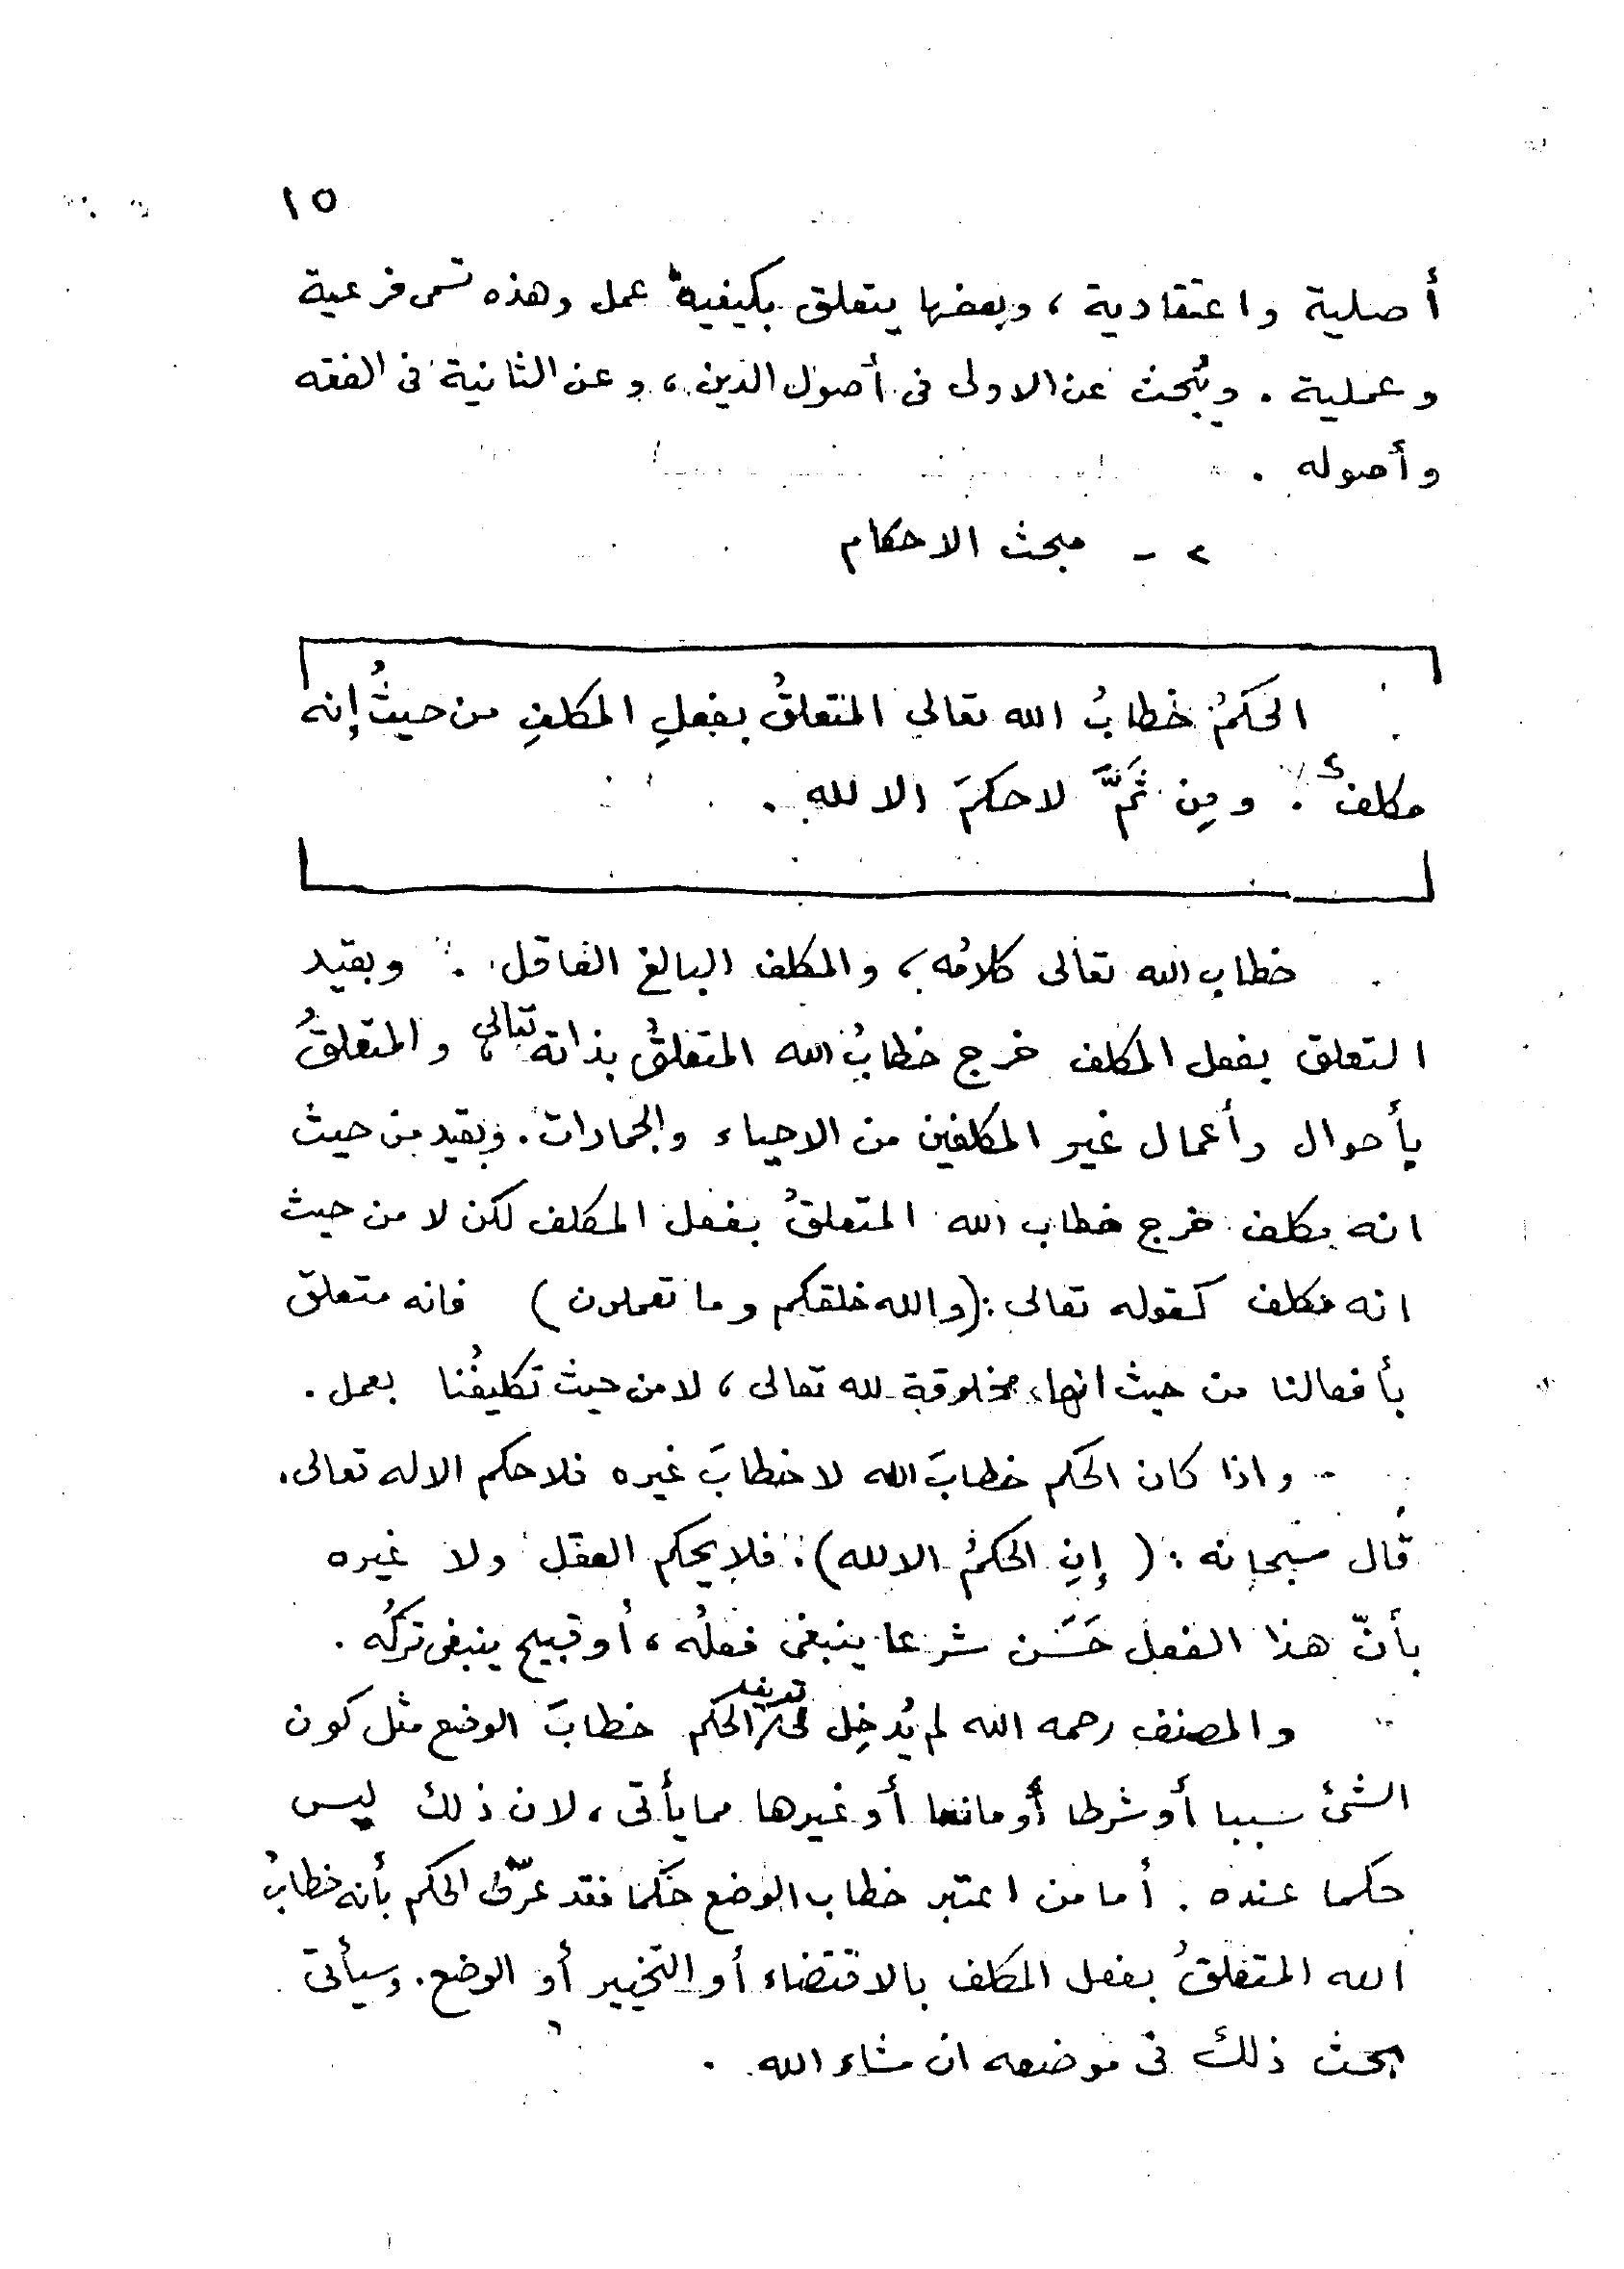 ١٥
أصلية واعتقادية ، وبعضها يتعلق بكيفية عمل وهذه تسمى فرعية
وعملية . ويُبحث عن الاولى في أصول الدين ، وعن الثانية في الفقه
وأصوله .
٢ - مبحث الاحكام
الحكمُ خطابُ الله تعالى المتعلقُ بفعلِ المكلفِ من حيثُ إنه
مكلف . ومِن ثَمَّ لا حكمَ الا لله .
خطاب الله تعالى كلامُه ، والمكلف البالغ العاقل . وبقيد
التعلق بفعل المكلف خرج خطابُ الله المتعلقُ بذاته تعالى ، والمتعلقُ
بأحوال وأعمال غير المكلفين من الاحياء والجمادات . وبقيد من حيث
انه مكلف خرج خطاب الله المتعلقُ بفعل المكلف لكن لا من حيث
انه مكلف كقوله تعالى : (والله خلقكم وما تعملون) فانه متعلق
بأفعالنا من حيث انها مخلوقة لله تعالى ، لا من حيث تكليفُنا بعمل .
واذا كان الحكم خطابَ الله لا خطابَ غيره فلا حكم الا له تعالى .
قال سبحانه : ( إنِ الحكمُ الا لله ) . فلا يحكم العقل ولا غيره
بأنّ هذا الفعل حَسَن شرعا ينبغي فعلُه ، أو قبيح ينبغي تركُه .
والمصنف رحمه الله لم يُدخِل في تعريف الحكم خطابَ الوضع مثل كون
الشئ سببا أو شرطا أو مانعا أو غيرها مما يأتي ، لان ذلك ليس
حكما عنده . أما من اعتبر خطاب الوضع حكما فقد عرّف الحكم بأنه خطابُ
الله المتعلقُ بفعل المكلف بالاقتضاء أو التخيير أو الوضع . وسيأتي
بحث ذلك في موضعه ان شاء الله .